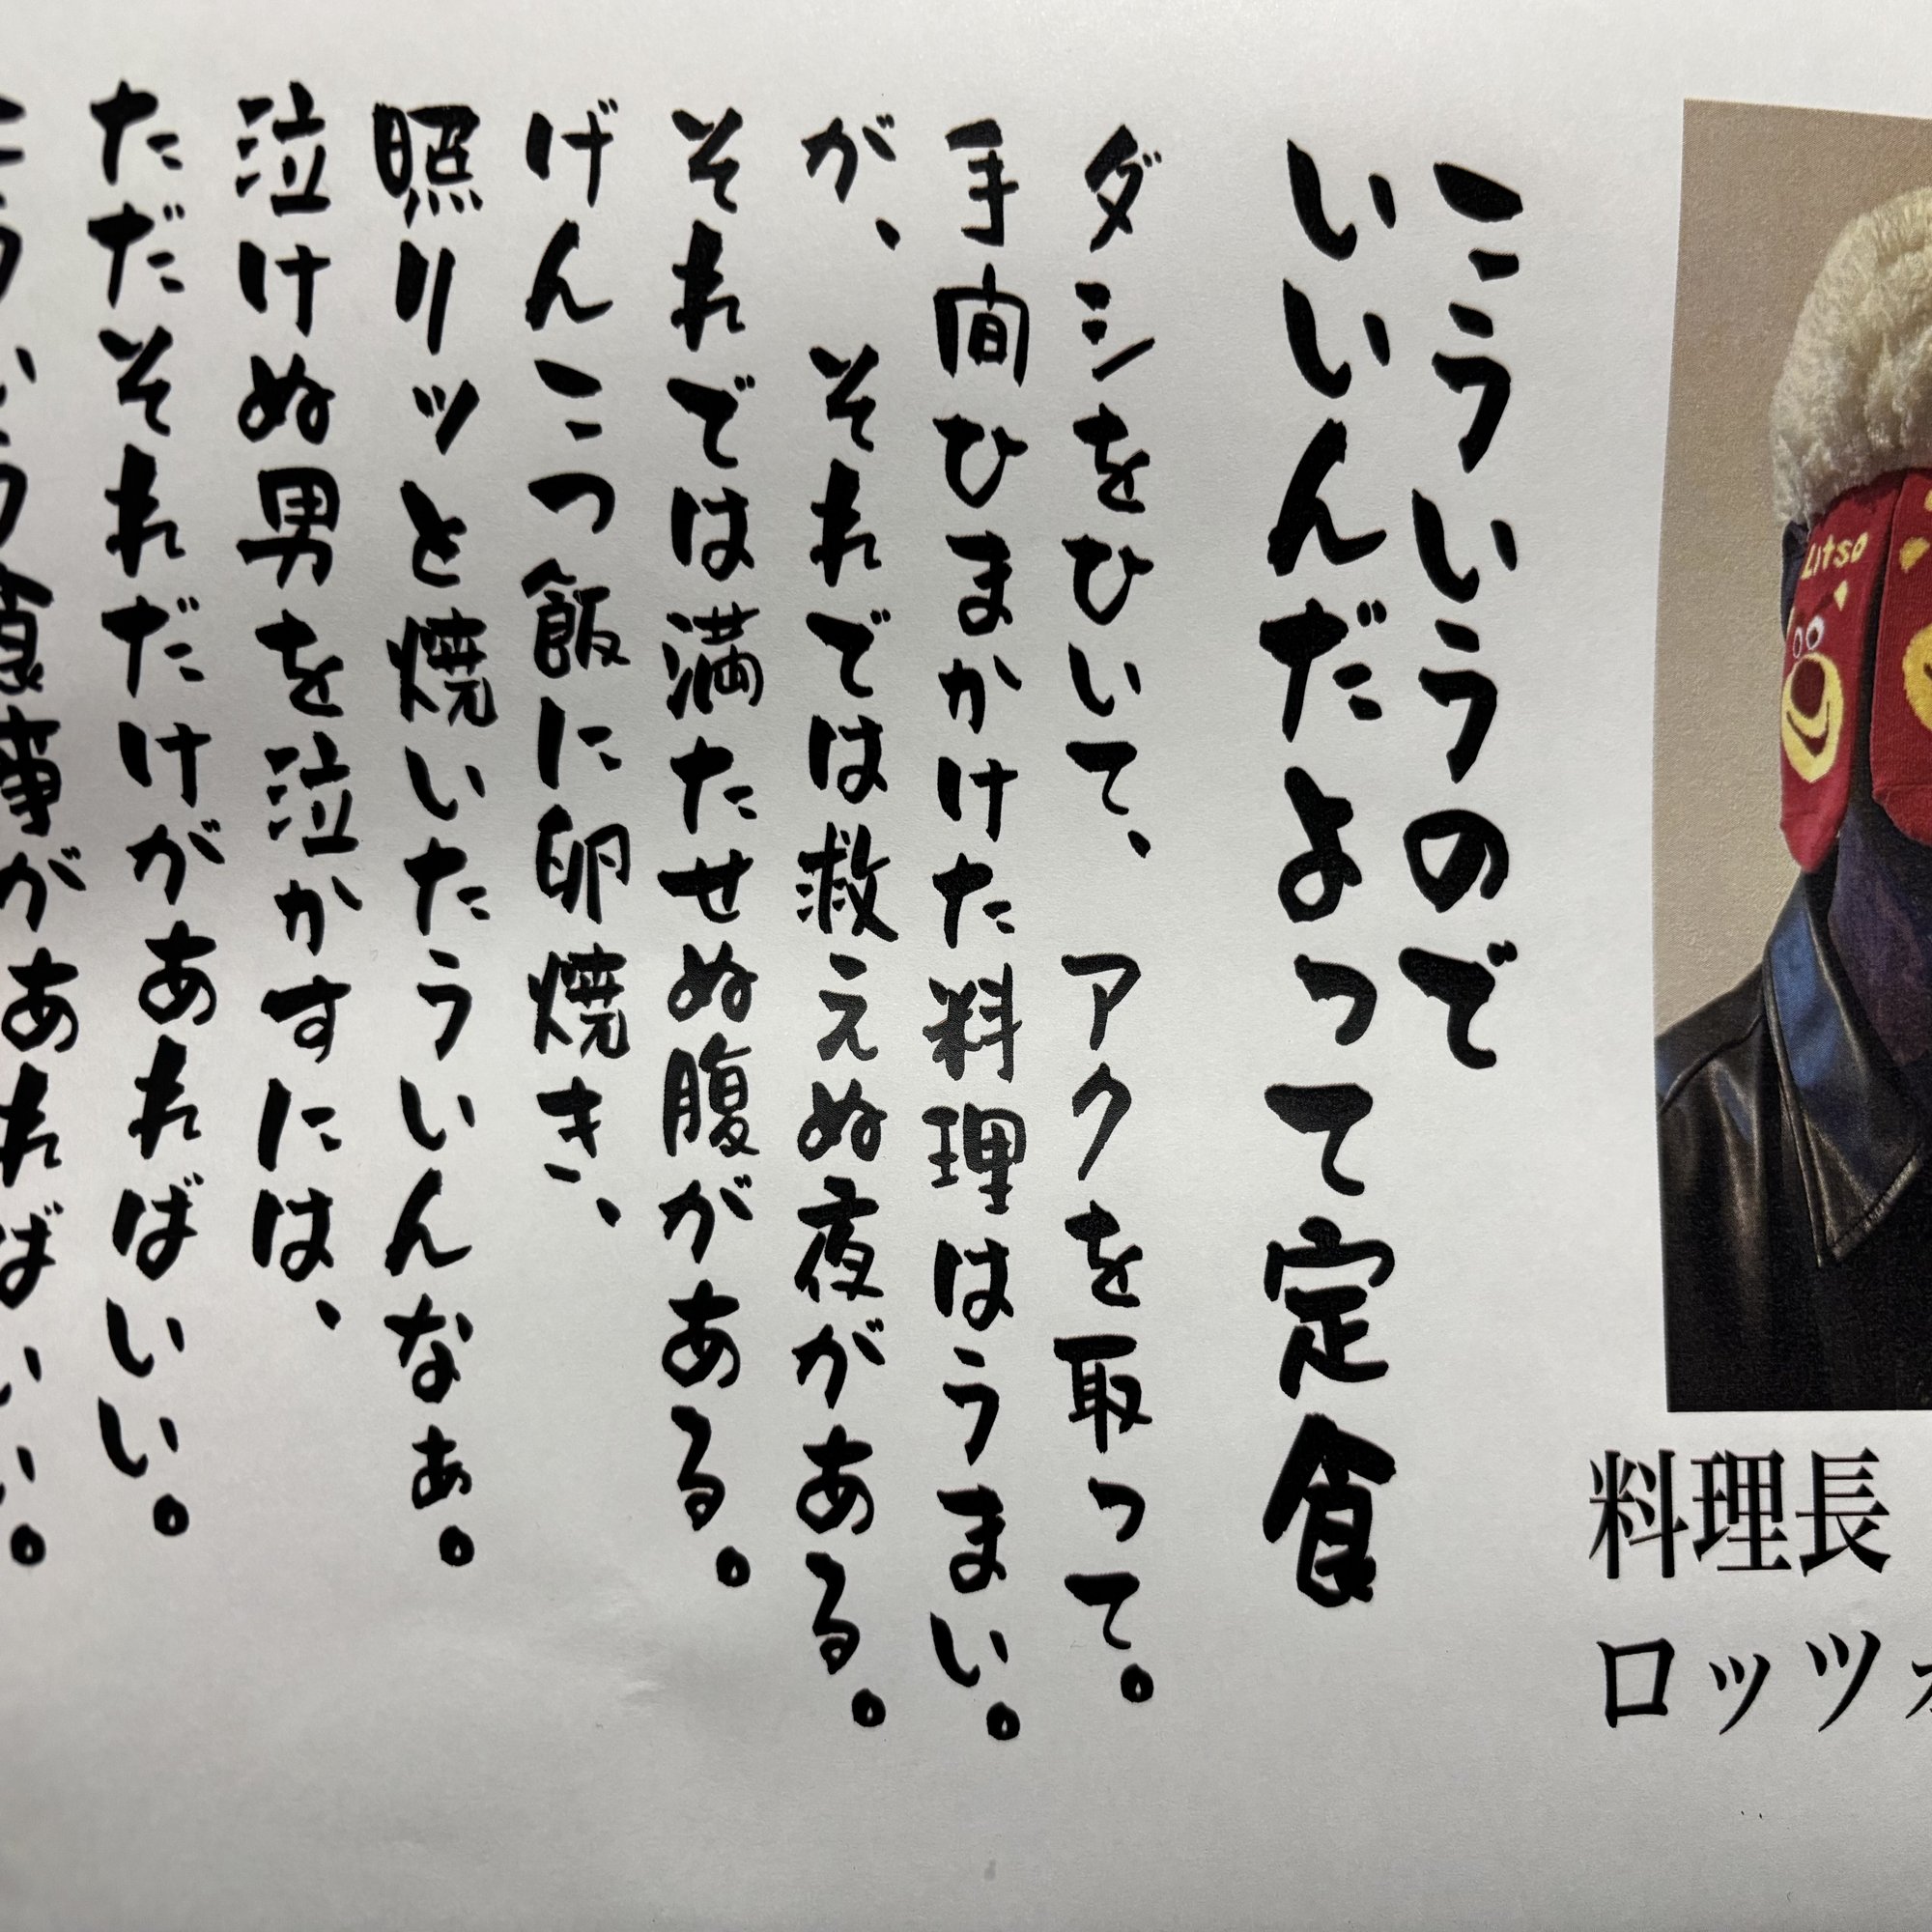 こういうので
いいんだよって定食
ダシをひいて、アクを取って。
手間ひまかけた料理はうまい。
が、それでは救えぬ夜がある。
それでは満たせぬ腹がある。
げんこつ飯に卵焼き、
照リッと焼いたういんなぁ。
泣けぬ男を泣かすには、
ただそれだけがあればいい。
食事があればいい。
Litso
料理長
ロッツォ